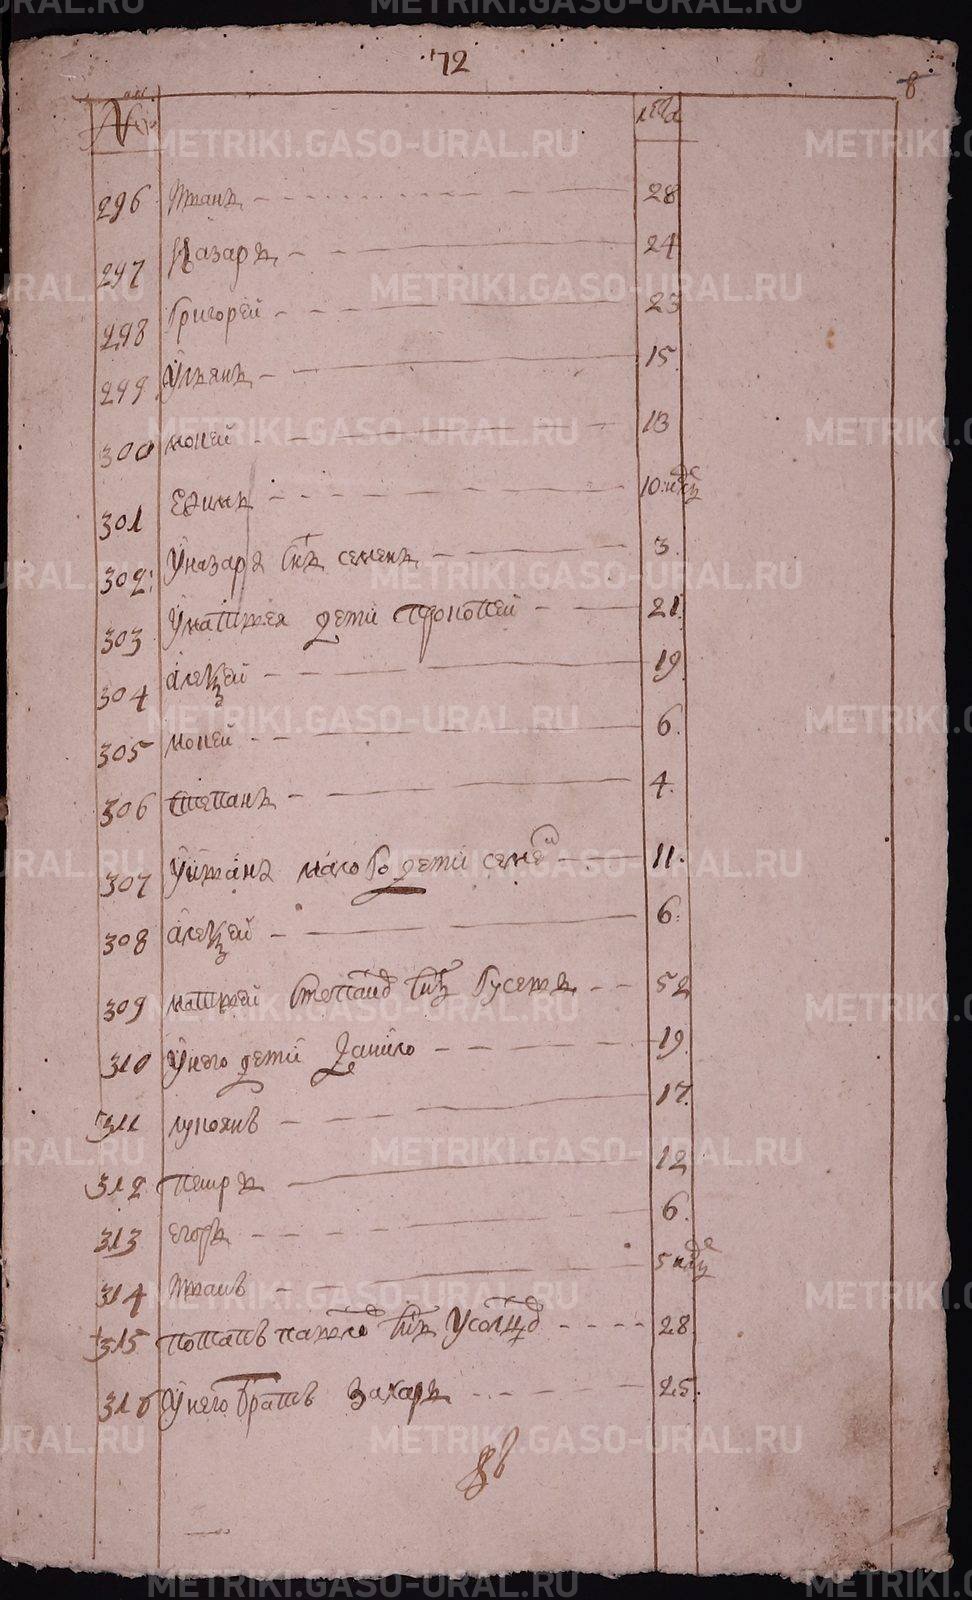 72
8
№
лѣта
296 Иванъ 28
297 Назаръ 24
298 Григорей 23
299 Ульянъ 15
300 мокей 13
301 Ефимъ 10 нде
302: Уназара снъ семенъ 3
303 Уматвея дети прокопей 21
304 алеѯей 19
305 мокей 6
306 степанъ 4
307 Уивана дети семе 11
308 алеѯей 6
309 матвей степанов снъ Гусевъ 52
310 Унего дети Данило 19
311 лукоянъ 17
312 петръ 12
313 егоръ 6
314 Иванъ 5 нде
315 потапъ павлов снъ Усолцов 28
316 Унего братъ захаръ 25
METRIKI.GASO-URAL.RU